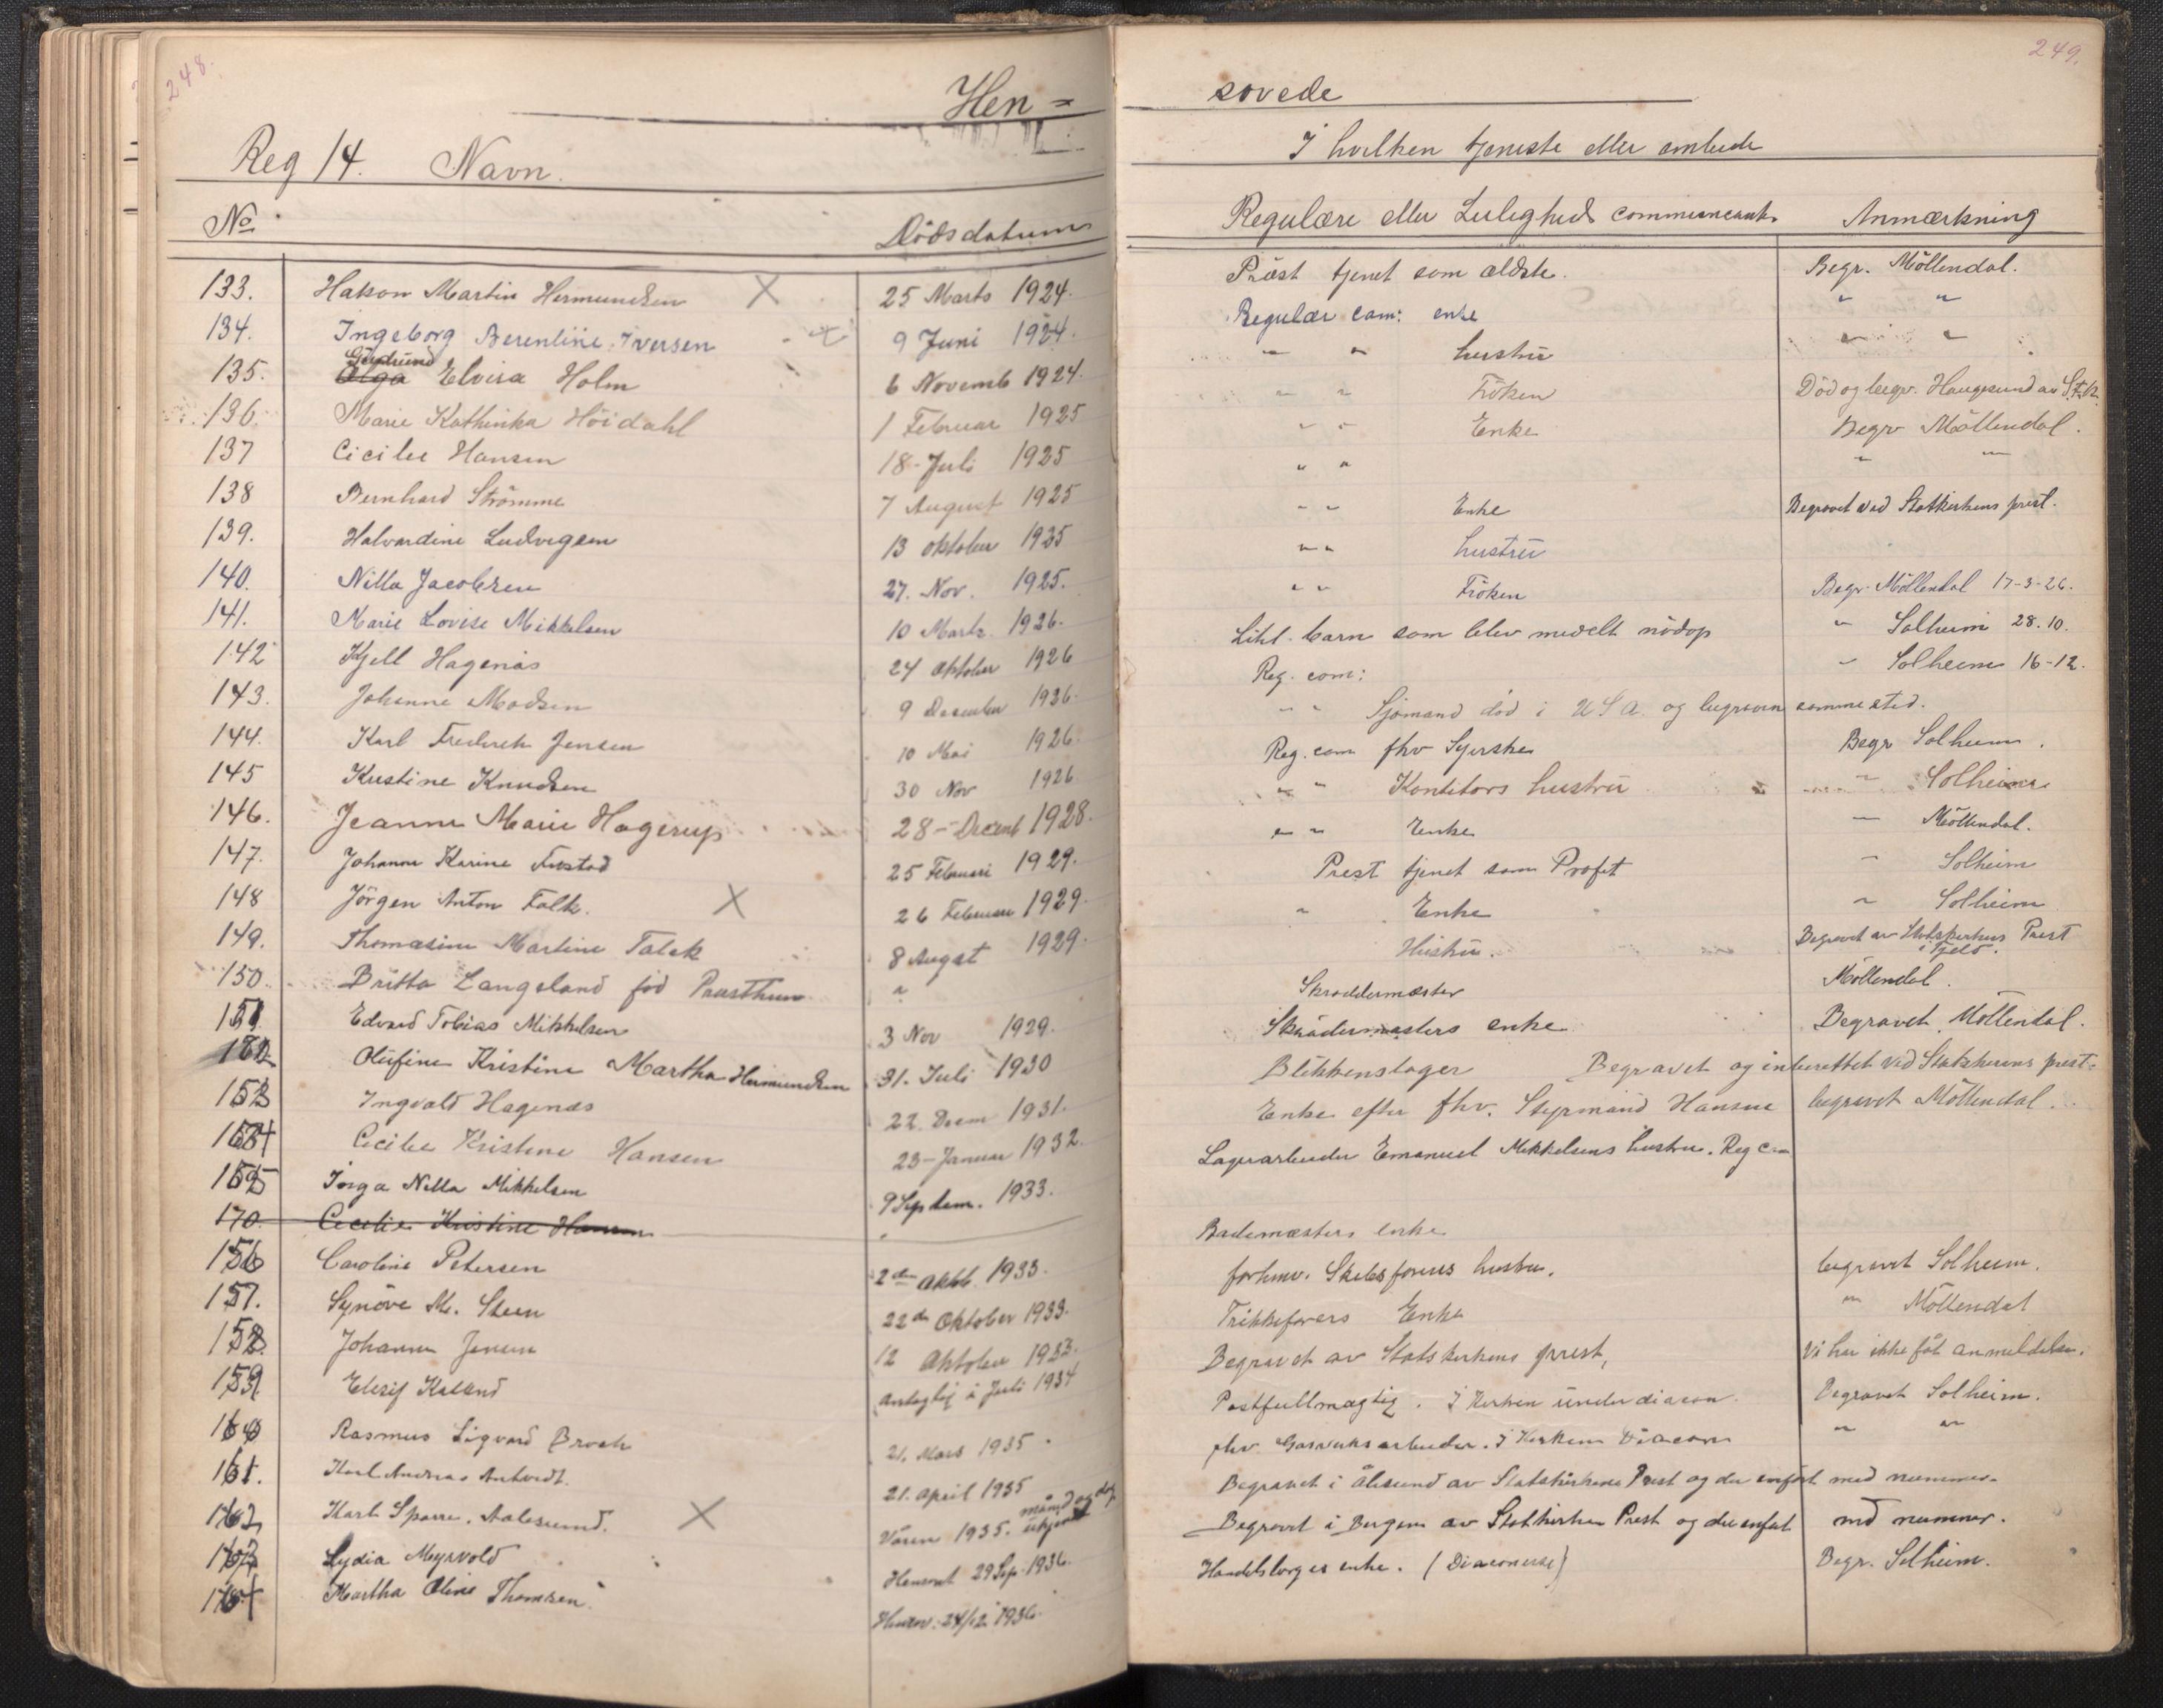 248.
Hen =
Reg 14. Navn.
No.
Dödsdatum
133. Hakon Martin Hermundsen X 25 Marts 1924.
134. Ingeborg Berentine Iversen X 9 Juni 1924.
Gudrund
135. Olga Elvira Holm 6 Novemb 1924.
136. Marie Kathinka Höidahl 1 Februar 1925
137 Cicilie Hansen 18-Juli 1925
138 Bernhard Strömme 7 August 1925
139. Halvardine Ludvigsen 13 oktober 1935
140. Nilla Jacobsen 27. Nov. 1925.
141. Marie Lovise Mikkelsen 10 Marts. 1926.
142 Kjell Hagenäs 24 Oktober 1926
143. Johanne Madsen 9 Desember 1926.
144. Karl Frederik Jensen 10 Mai 1926.
145 Kristine Knudsen 30 Nov 1926
146. Jeanne Marie Hagerup 28-Decemb 1928.
147. Johanne Karine 25 Februari 1929.
148 Jörgen Anton Falk. X 26 Februar 1929.
149. Thomasine Martine Falck 8 August 1929.
150. Britta Langeland föd "
151. Edvard Tobias Mikkelsen 3 Nov 1929.
152 Olufine Kristine Martha Hermundsen 31. Juli 1930
153 Ingvald Hagenæs 22. Decm 1931.
154 Cecilie Kristine Hansen 23-Januar 1932.
155 Inga Nilla Mikkelsen 9 Septem. 1933.
170. Cecilie Kristine Hansen
156 Caroline Petersen 2den Oktb. 1933.
157. Synöve M. Steen 22de Oktober 1933.
158. Johanne Jensen 12 Oktober 1933.
159. Elesif Kaland antaglig i Juli 1934
160 Rasmus Sigvard Broch 21. Mars 1935.
161. Karl Andreas 21. april 1935
månd og dag
162 Karl Sparre. Aalesund. X Våren 1935. ukjent
163 Lydia Myrvold Hensovt 29 Sep. 1936.
164 Martha Oline Thomsen. Hensov. 24/12 1936.
249.
sovede
I hvilken tjeneste eller embede
Regulære eller Leilighets communcants Anmærkning
Präst tjenet som ældste. Begr. Möllendal.
Regulær com: enke " "
" " hustru " "
" " Fröken Död og begr. Haugesund av
" " Enke Begr Möllendal.
" " " "
" " Enke Begravet ved Statkirkens prest.
" " hustru
" " Fröken Begr. Möllendal 17-3-26.
Litet barn som blev medelt nödop " Solheim 28.10.
Reg. com: " Solheim 16-12.
" " Sjömand död i USA. og begraven sammested.
Reg. com fhv Syerske Begr Solheim.
" " hustru " Solheim
" " Enke " Möllendal.
Prest tjenet som Profet " Solheim
" Enke " Solheim
Hustru. Begravet av Statskirkens Prest
i Fjeld.
Skræddermæster Möllendal.
Skrädermæsters enke Begravet Möllendal.
Blikkenslager Begravet og inberettet ved Statskirkens prest.
Enke efter fhv. Styrmand Hansen begravet Möllendal.
Lagerarbeider Emanuel Mikkelsens hustru. Reg com
Bademæsters enke
forhenv. Skibsförers hustru. begravet Solheim.
Trikkeförers Enke " Möllendal
Begravet av Statskirkens prest, Vi har ikke fåt anmeldelse.
Postfullmægtig. I kirken underdiacon. Begravet Solheim.
fhv. Gasverksarbeider. I Kirken Diacon " "
Begravet i Ålesund av Statskirkens Prest og der enfört med nummer.
Begravet i Bergen av Statkirken Prest og der enfört med nummer.
Handelsborgers enke. (Diaconesse) Begr. Solheim.